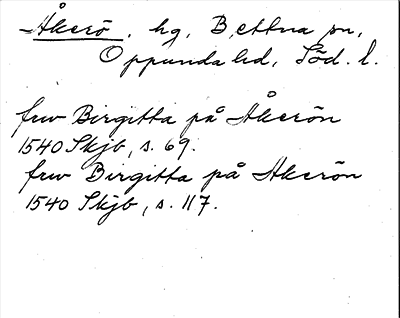 Åkerö, hg, Bettna sn,
Oppunda hd, Söd. l.
frw Birgitta på Åkerön
1540 Skjb, s. 69.
frw Birgitta på Akerön
1540 Skjb, s. 117.